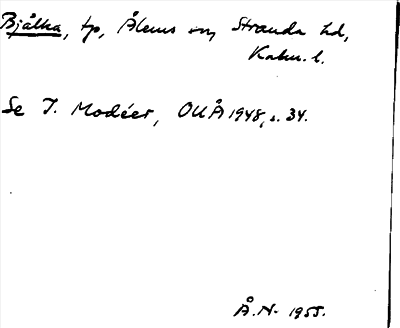 Bjälka, tp, Ålems sn, Stranda hd,
Kalm. l.
Se I. Modéer, OUÅ 1948, s. 34.
Å.N. 1955.